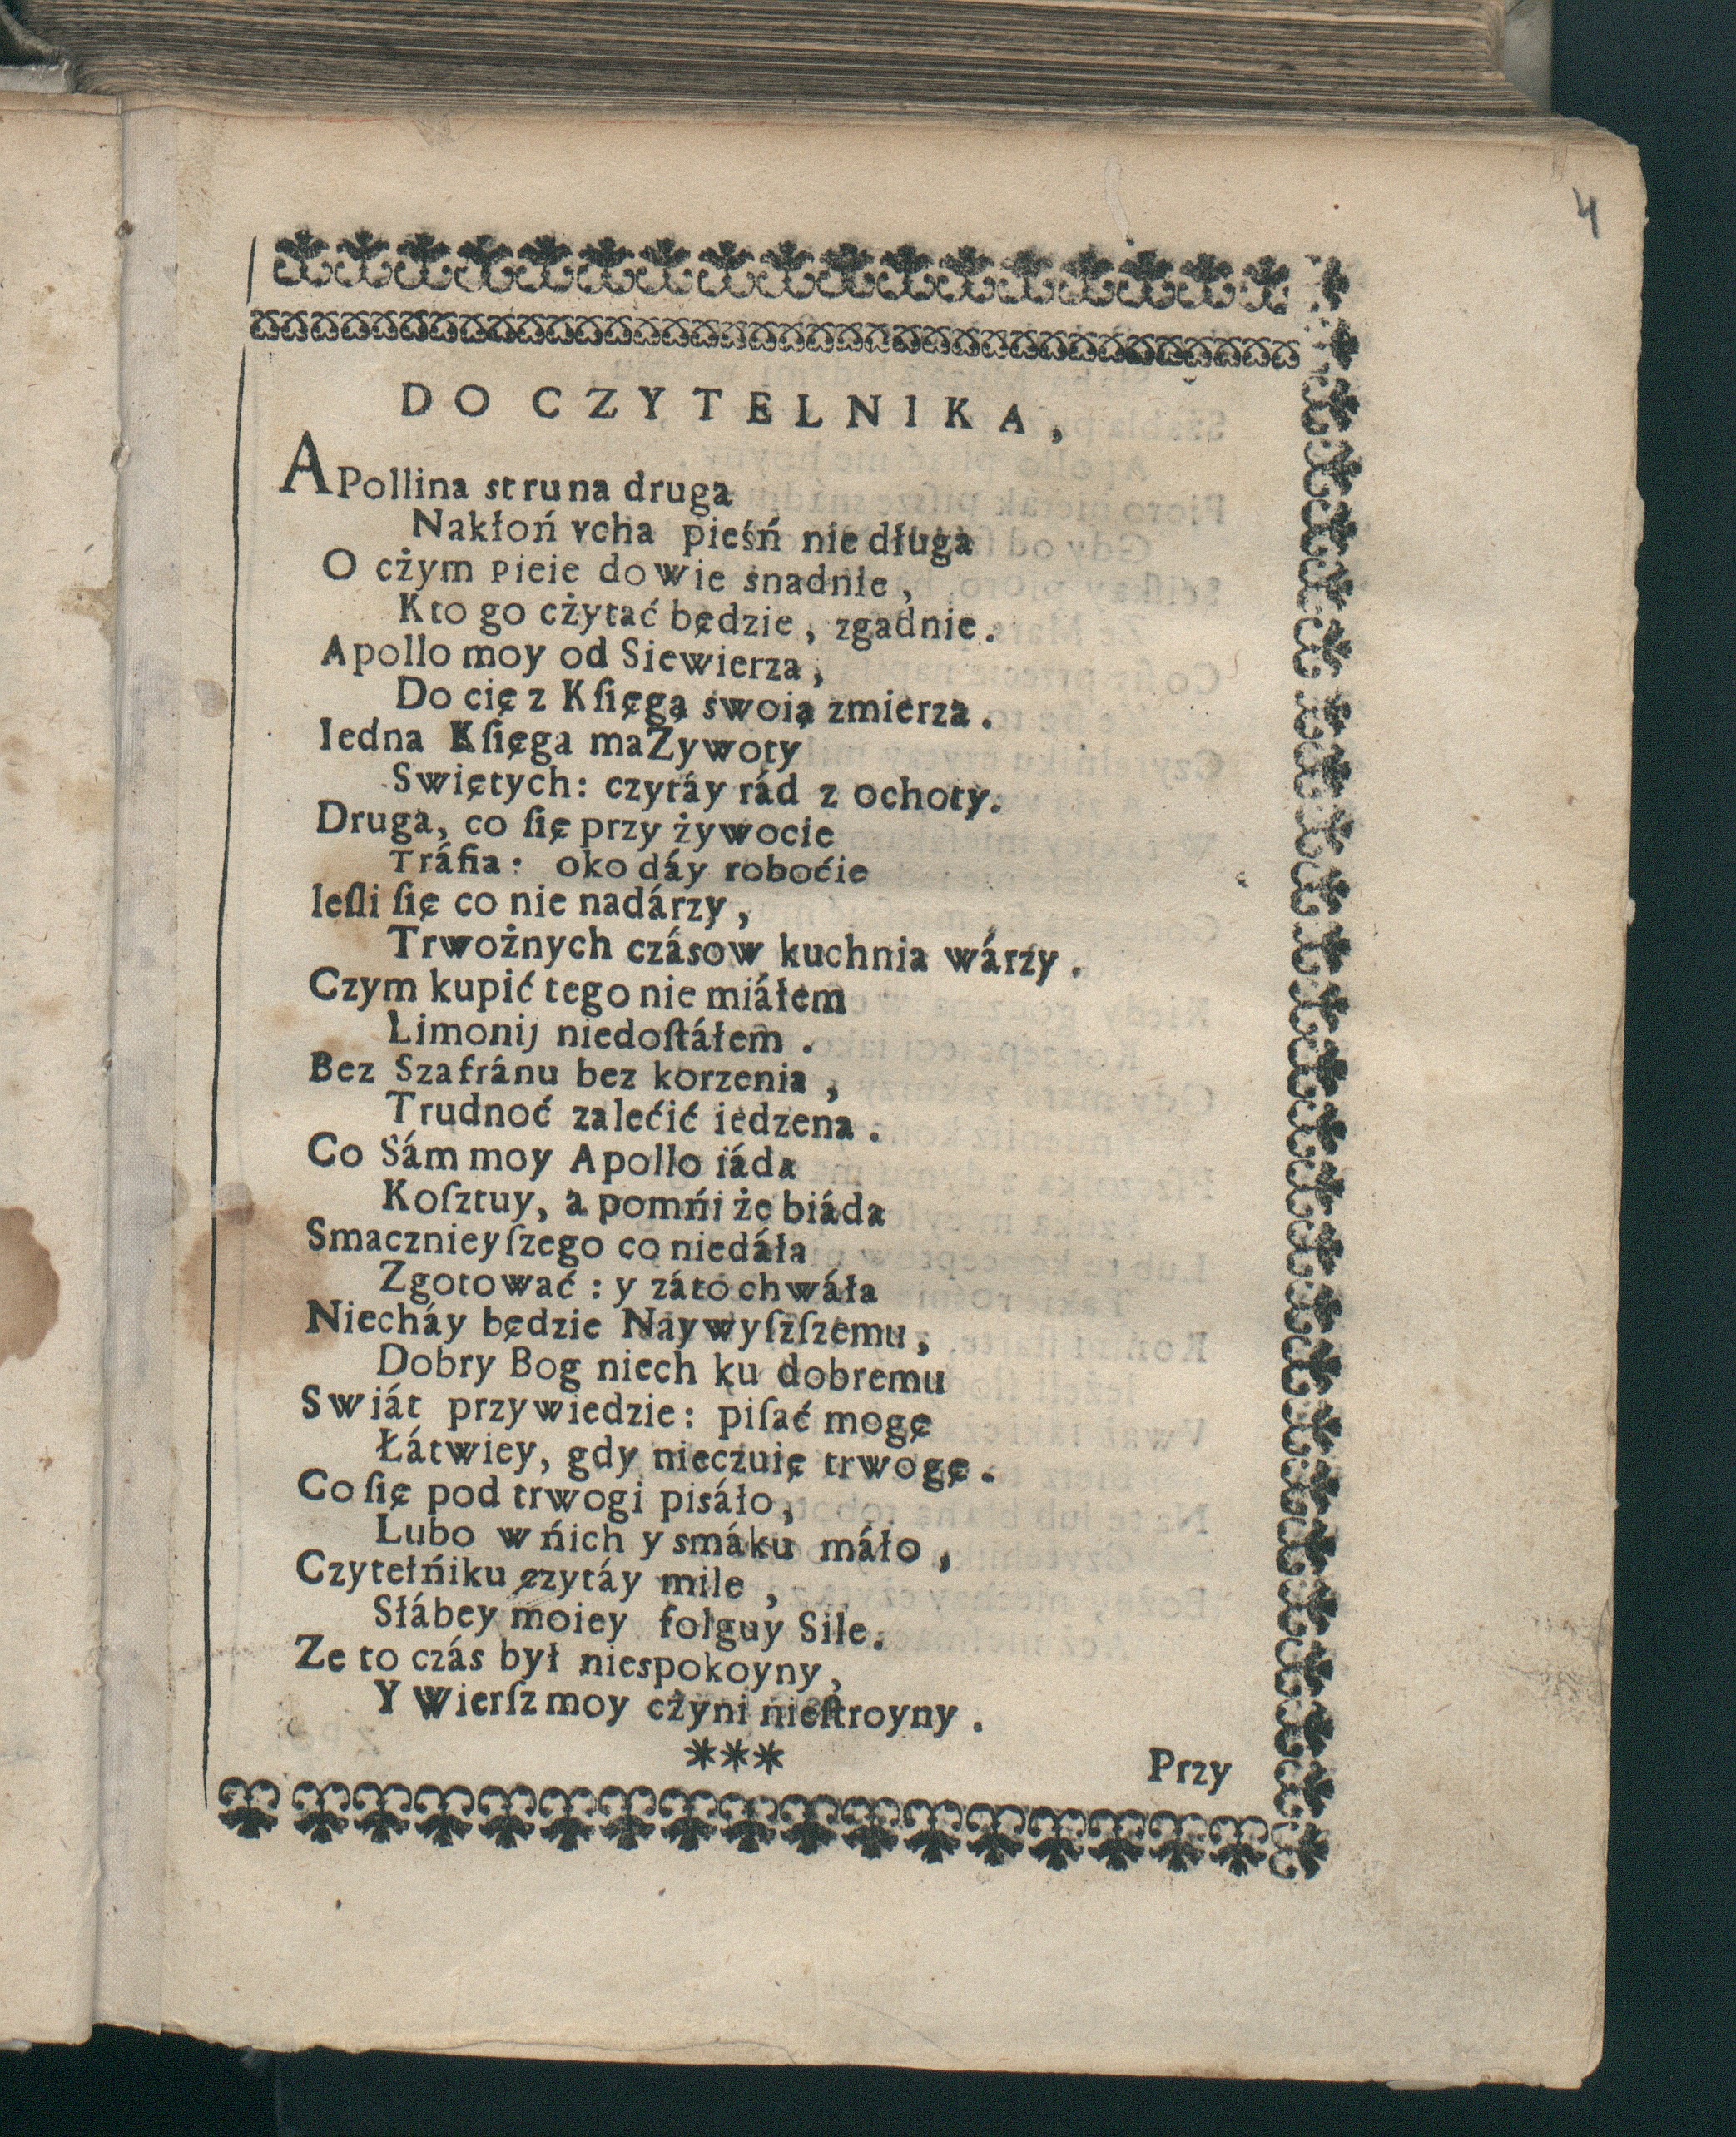 4
DO CZYTELNIKA,
APollina struna druga
Nakłoń vcha pieśń nie długa
O cżym pieie dowie snadnie,
Kto go cżytać będzie, zgadnie.
Apollo moy od Siewierza,
Do cię z Kſięgą swoią zmierza.
Iedna Kſięga ma Zywoty
Swiętych: czytáy rád z ochoty.
Druga, co ſię przy żywocie
Tráfia: oko dáy roboćie
Ieſli ſię co nie nadárzy,
Trwożnych czásow kuchnia wárzy.
Czym kupić tego nie miáłem
Limonij niedoſtáłem.
Bez Szafránu bez korzenia,
Trudnoć zalećić iedzena.
Co Sám moy Apollo iáda
Koſztuy, a pomńi że biáda
Smacznieyſzego co niedáła
Zgotować: y záto chwáła
Niecháy będzie Naywyſzſzemu,
Dobry Bog niech ku dobremu
Swiát przywiedzie: piſać mogę
Łátwiey, gdy nieczuię trwogę.
Co ſię pod trwogi pisáło,
Lubo w ńich y smáku máło,
Czytełńiku czytáy mile,
Słábey moiey folguy Sile.
Ze to czás był niespokoyny,
Y Wierſz moy cżyni nieſtroyny.
***
Przy